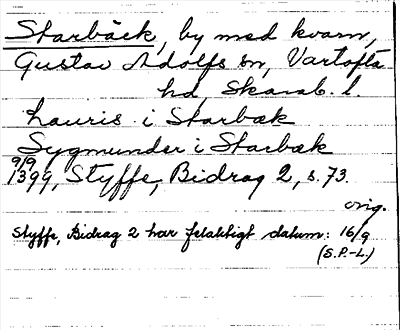 Starbäck, by med kvarn,
Gustav Adolfs sn, Vartofta
hd Skarab. l.
Lauris i Starbæk
Sygmunder i Starbæk
9/9
1399, Styffe, Bidrag 2, s. 73.
orig.
Styffe, Bidrag 2 har felaktigt datum: 16/9
(S.P.-L.)